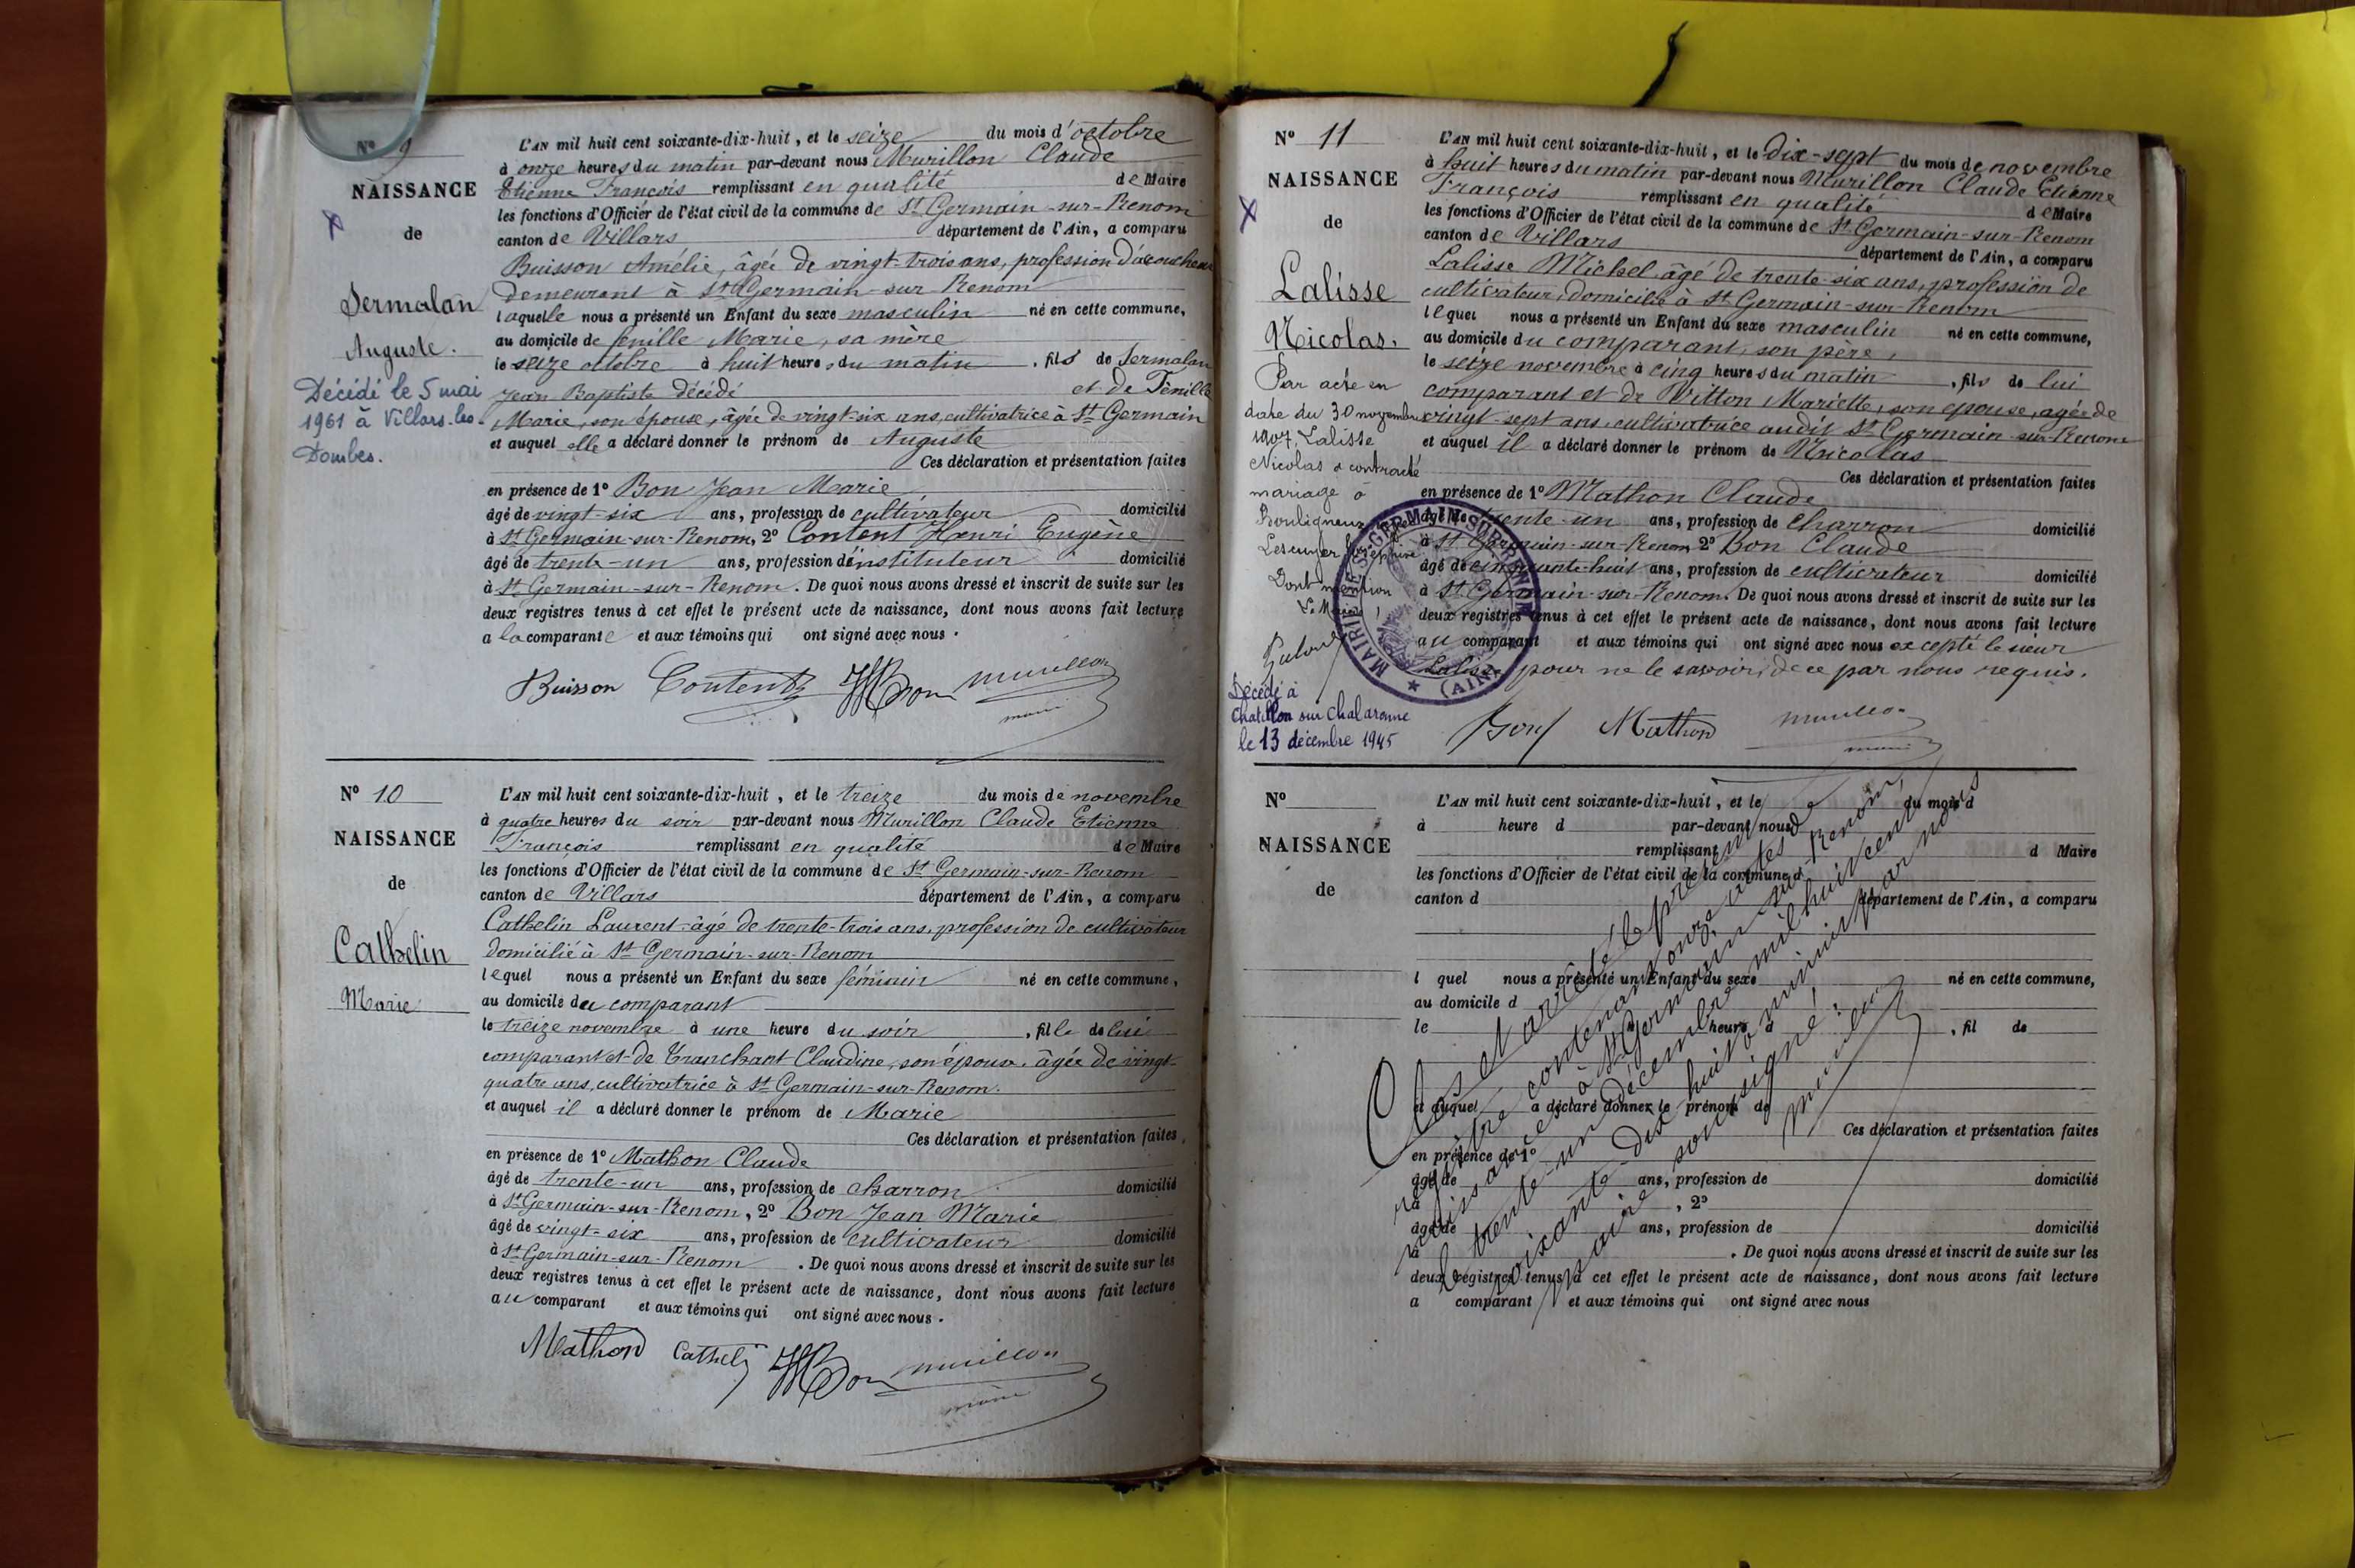 N° 9
NAISSANCE
de
Sermalan
Auguste.
Décédé le 5 mai
1961 à Villars-les-
Dombes.
L'AN mil huit cent soixante-dix-huit, et le seize du mois d'octobre
à onze heures du matin par-devant nous Murillon Claude
Etienne François remplissant en qualité de Maire
les fonctions d'Officier de l'état civil de la commune de St Germain-sur-Renom
canton de Villars département de l'Ain, a comparu
Buisson Amélie, âgée de vingt-trois ans, profession d'accoucheuse
demeurant à St Germain-sur-Renom
laquelle nous a présenté un Enfant du sexe masculin né en cette commune,
au domicile de Fenille Marie, sa mère
le seize octobre à huit heures du matin, fils de Sermalan
Jean Baptiste décédé et de Fenille
Marie, son épouse, âgée de vingt-six ans, cultivatrice à St Germain
et auquel elle a déclaré donner le prénom de Auguste
Ces déclaration et présentation faites
en présence de 1° Bon Jean Marie
âgé de vingt-six ans, profession de cultivateur domicilié
à St Germain-sur-Renom, 2° Content Henri Eugène
âgé de trente-un ans, profession d'instituteur domicilié
à St Germain-sur-Renom. De quoi nous avons dressé et inscrit de suite sur les
deux registres tenus à cet effet le présent acte de naissance, dont nous avons fait lecture
a la comparante et aux témoins qui ont signé avec nous.
Buisson Content JMBon Murillon
maire
N° 10
NAISSANCE
de
Cathelin
Marie
L'AN mil huit cent soixante-dix-huit, et le treize du mois de novembre
à quatre heures du soir par-devant nous Murillon Claude Etienne
François remplissant en qualité de Maire
les fonctions d'Officier de l'état civil de la commune de St Germain-sur-Renom
canton de Villars département de l'Ain, a comparu
Cathelin Laurent âgé de trente-trois ans, profession de cultivateur
domicilié à St Germain-sur-Renom
lequel nous a présenté un Enfant du sexe féminin né en cette commune,
au domicile du comparant
le treize novembre à une heure du soir, fille de lui
comparant et de Tranchant Claudine, son épouse, âgée de vingt-
quatre ans, cultivatrice à St Germain-sur-Renom.
et auquel il a déclaré donner le prénom de Marie
Ces déclaration et présentation faites,
en présence de 1° Mathon Claude
âgé de trente-un ans, profession de charron domicilié
à St Germain-sur-Renom, 2° Bon Jean Marie
âgé de vingt-six ans, profession de cultivateur domicilié
à St Germain-sur-Renom. De quoi nous avons dressé et inscrit de suite sur les
deux registres tenus à cet effet le présent acte de naissance, dont nous avons fait lecture
au comparant et aux témoins qui ont signé avec nous.
Mathon Cathelin JMBon Murillon
maire
N° 11
NAISSANCE
de
Lalisse
Nicolas.
Par acte en
date du 30 novembre
1907, Lalisse
Nicolas a contracté
mariage à
Bouligneux
Lescuyer Joséphine
Dont mention
Le Maire,
Décédé à
Chatillon sur Chalaronne
le 13 décembre 1945
MAIRIE DE ST GERMAIN SUR RENOM
(AIN)
L'AN mil huit cent soixante-dix-huit, et le dix-sept du mois de novembre
à huit heures du matin par-devant nous Murillon Claude Etienne
François remplissant en qualité de Maire
les fonctions d'Officier de l'état civil de la commune de St Germain-sur-Renom
canton de Villars département de l'Ain, a comparu
Lalisse Michel âgé de trente-six ans, profession de
cultivateur, domicilié à St Germain-sur-Renom
lequel nous a présenté un Enfant du sexe masculin né en cette commune,
au domicile du comparant, son père,
le seize novembre à cinq heures du matin, fils de lui
comparant et de Vitton Mariette, son épouse, agée de
vingt-sept ans, cultivatrice audit St Germain-sur-Renom
et auquel il a déclaré donner le prénom de Nicolas
Ces déclaration et présentation faites
en présence de 1° Mathon Claude
âgé de trente-un ans, profession de charron domicilié
à St Germain-sur-Renom 2° Bon Claude
âgé de cinquante-huit ans, profession de cultivateur domicilié
à St Germain-sur-Renom. De quoi nous avons dressé et inscrit de suite sur les
deux registres tenus à cet effet le présent acte de naissance, dont nous avons fait lecture
au comparant et aux témoins qui ont signé avec nous excepté le sieur
Lalisse pour ne le savoir, de ce par nous requis.
Bon Mathon Murillon
maire
N°
NAISSANCE
de
L'AN mil huit cent soixante-dix-huit, et le du mois d
à heure d par-devant nous
remplissant d Maire
les fonctions d'Officier de l'état civil de la commune d
canton d département de l'Ain, a comparu
l quel nous a présenté un Enfant du sexe né en cette commune,
au domicile d
le heure d , fil de
et auquel a déclaré donner le prénom de
Ces déclaration et présentation faites
en présence de 1°
âgé de ans, profession de domicilié
à , 2°
âgé de ans, profession de domicilié
à . De quoi nous avons dressé et inscrit de suite sur les
deux registres tenus à cet effet le présent acte de naissance, dont nous avons fait lecture
a comparant et aux témoins qui ont signé avec nous
Clos et arrêté le présent
registre contenant onze actes de
naissances à St Germain-sur-Renom,
le trente-un décembre mil huit cent
soixante-dix huit à minuit par nous
maire soussigné.
Murillon